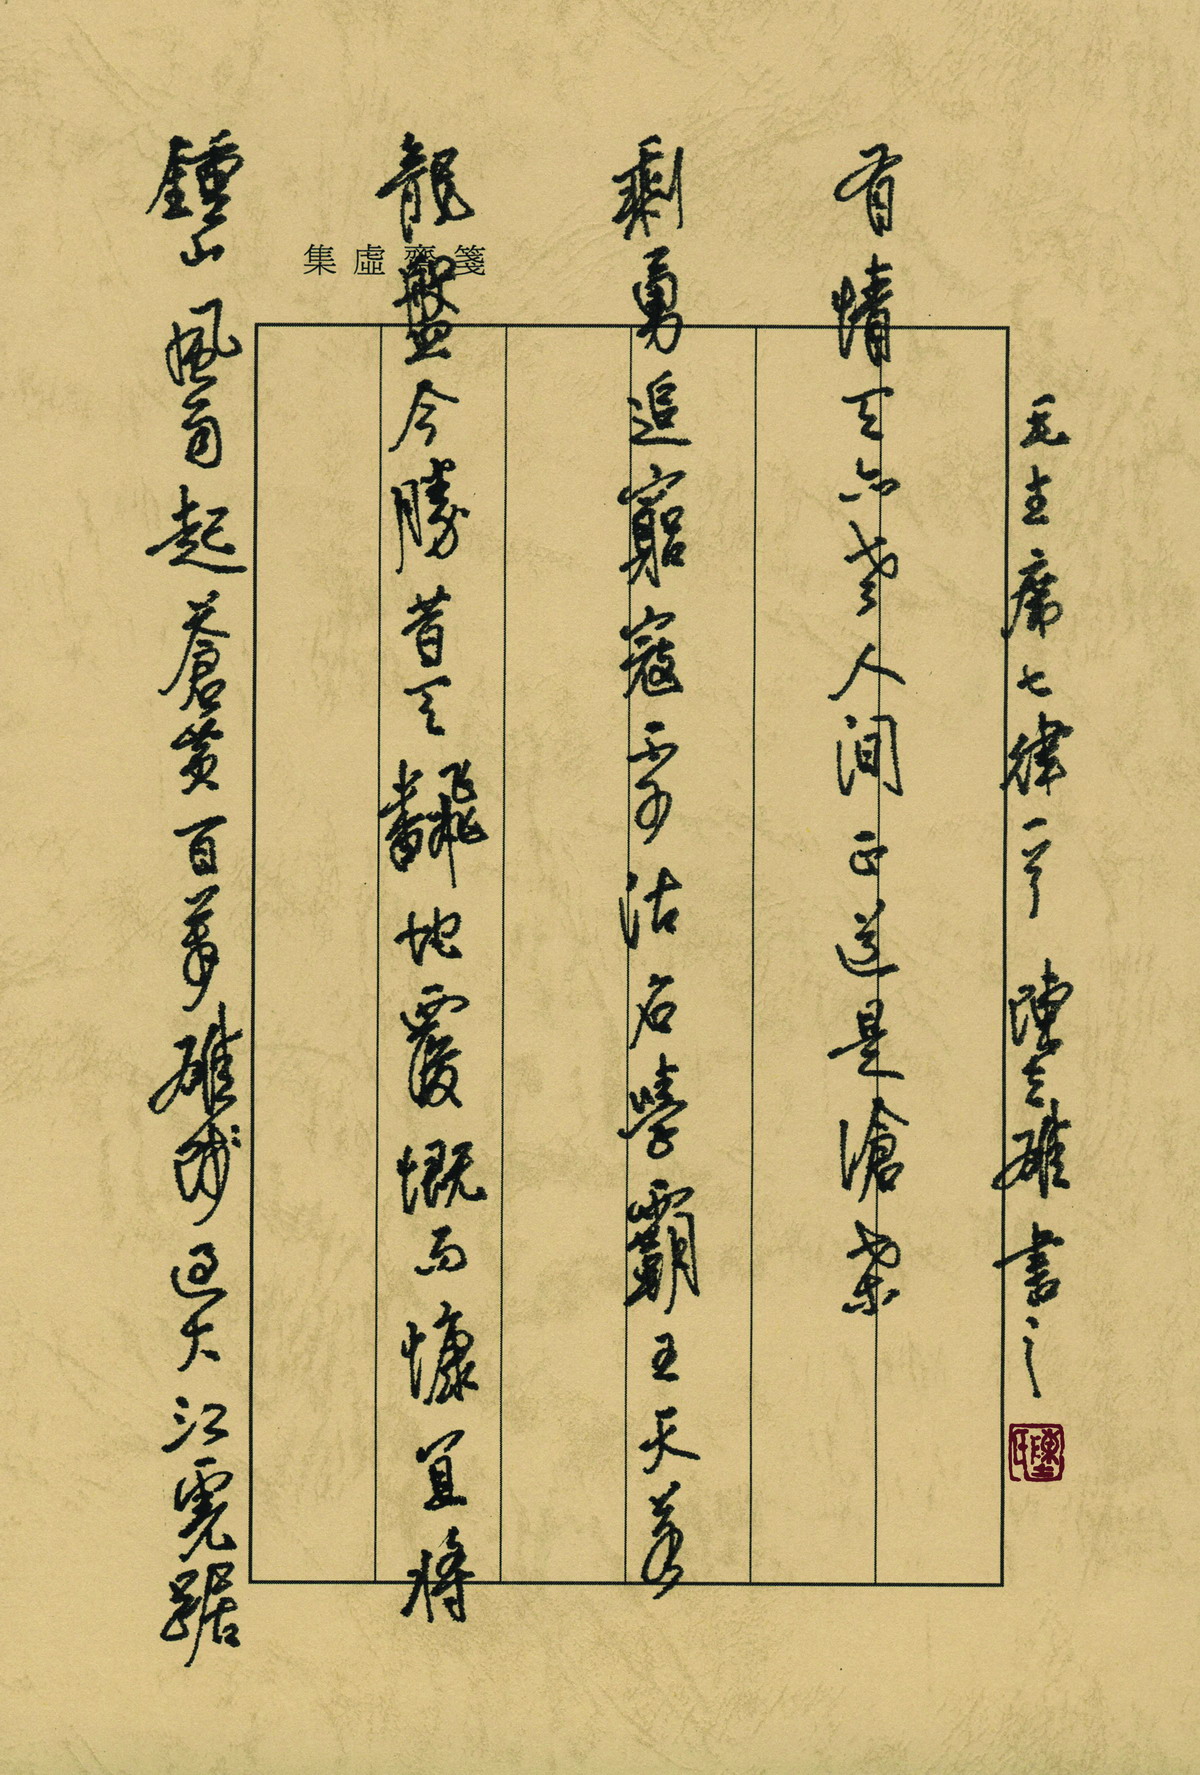 集虛齋箋
鍾山風雨起蒼黃百萬雄師過大江虎踞
龍盤今勝昔天飜地覆慨而慷宜將
剩勇追窮寇不可沽名學霸王天若
有情天亦老人間正道是滄桑
毛主席七律一首 陳雄書之